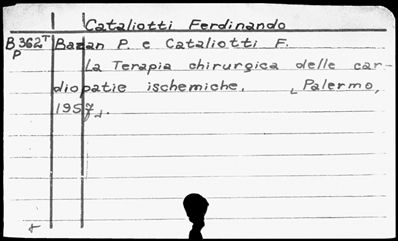 Cataliotti Ferdinando
B 362 T Bazan P. e Cataliotti F.
P
La Terapia chirurgica delle car-
diopatie ischemiche. [Palermo,
1957].